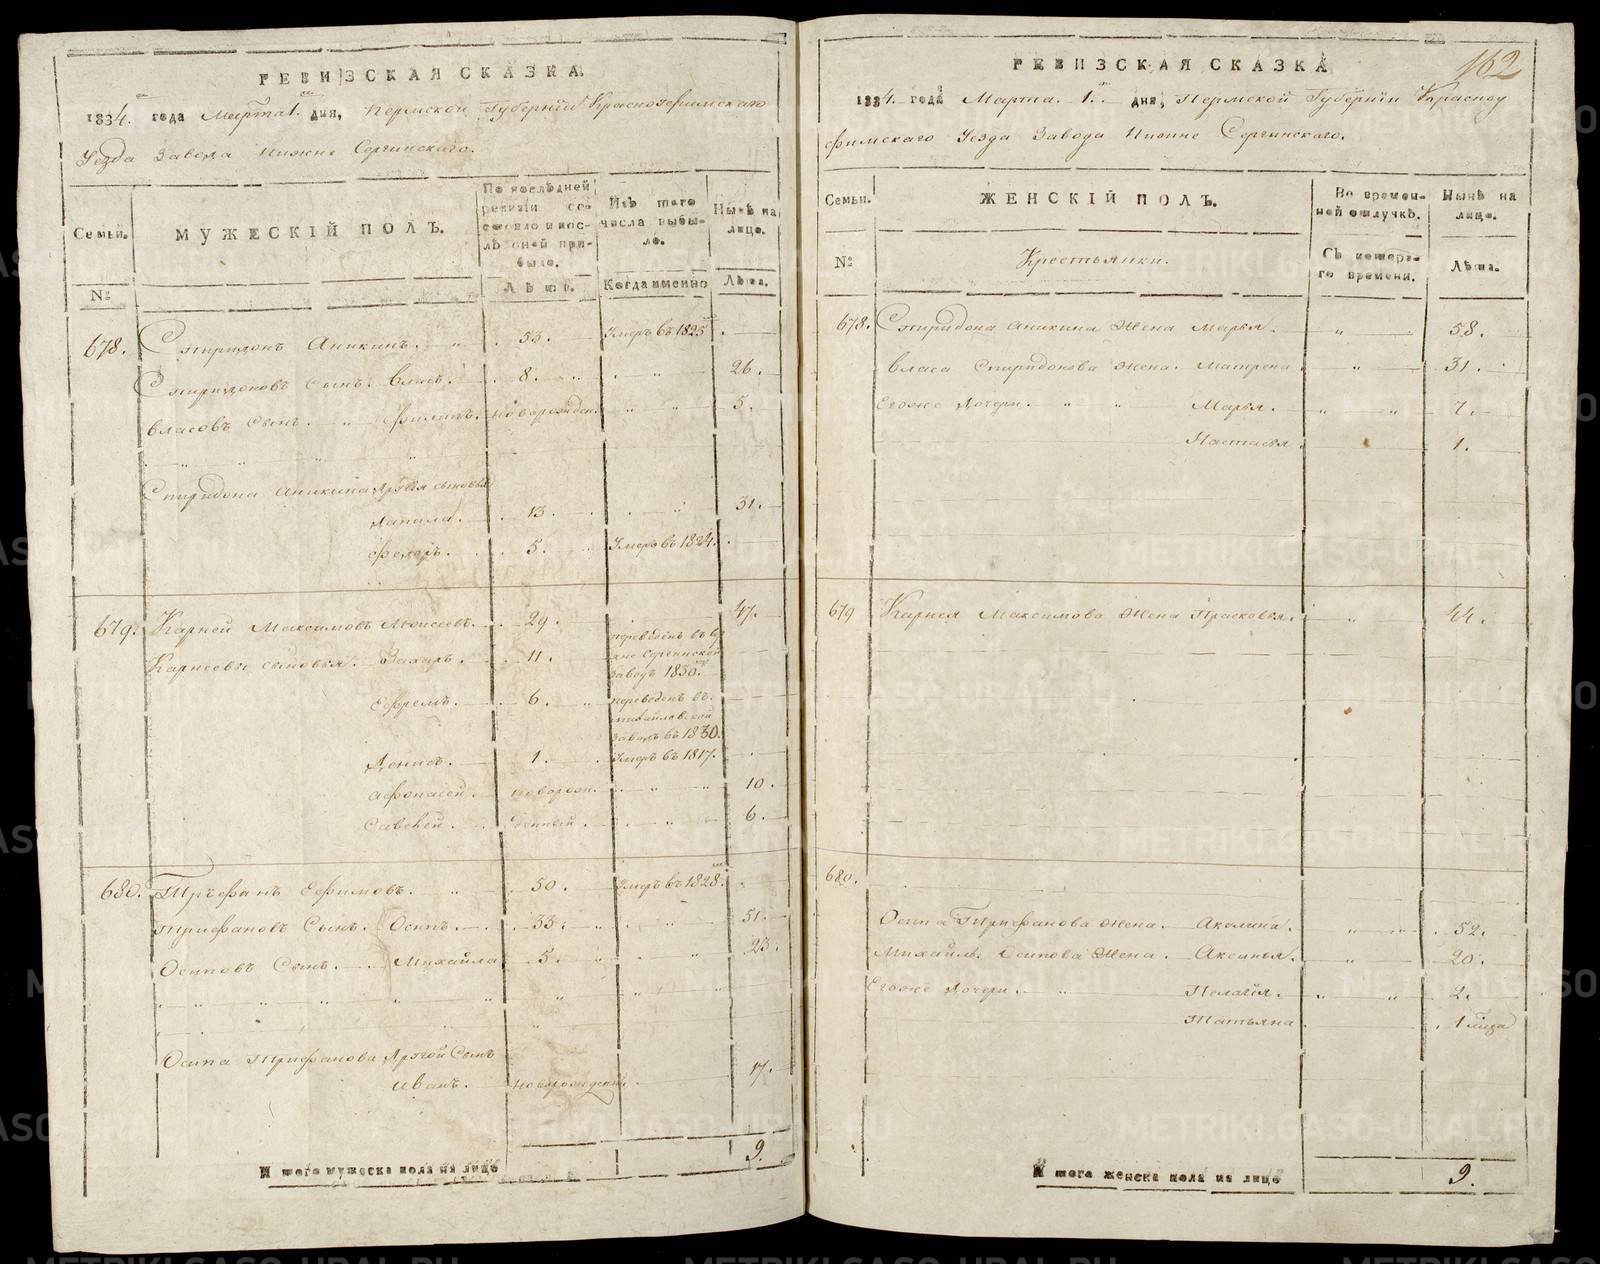 РЕВИЗСКАЯ СКАЗКА
1834. года Марта 1. дня, Пермской Губернiи Красноуфимскаго
Уезда Завода Нижне Сергинскаго.
Семьи.
МУЖЕСКIЙ ПОЛЪ.
По последней ревизiи состояло и после оной прибыло.
Изъ того числа выбыло.
Нынѣ на лицо.
№
Лѣта.
Когда именно
Лѣта.
678. Спиридонъ Аникинъ. 53. Умеръ въ 1825
Спиридоновъ Сынъ. Власъ. 8. 26.
Власовъ Сынъ. Филипъ. новорожден. 5.
Спиридона Аникина другiя сыновья
Данила. 13. 31.
Федоръ. 5. Умеръ въ 1824.
679. Карней Максимовъ Моисеевъ. 29. 47.
Карнеевы сыновья. Захаръ. 11. переведенъ въ Сергинской заводъ 1830.
Ефремъ. 6. переведенъ въ михайловской заводъ въ 1830.
Денисъ. 1. Умеръ въ 1817.
Афонасей. новорож 10.
Савелей. денный. 6.
680. Трифанъ Ефимовъ. 50. Умеръ въ 1828.
Трифановъ Сынъ. Осипъ. 33. 51.
Осиповъ Сынъ. Михайла 5. 23.
Осипа Трифанова другой Сынъ
Иванъ. новорожденный. 17.
И того мужеска пола на лице 9.
РЕВИЗСКАЯ СКАЗКА
162
1834. года Марта. 1. дня, Пермской Губернiи Красноу
фимскаго Уезда Завода Нижне Сергинскаго.
Семьи.
ЖЕНСКIЙ ПОЛЪ.
Во временной отлучкѣ.
Нынѣ на лицо.
№
Крестьянки.
Съ котораго времени.
Лѣта.
678. Спиридона Аникина Жена Марья. 58.
Власа Спиридонова Жена. Матрена. 31.
Егоже Дочери. Марья. 7.
Настасья. 1.
679 Карнея Максимова Жена Прасковья. 44.
680.
Осипа Трифанова Жена. Акелина. 52.
Михайлы Осипова Жена. Аксинья. 20.
Егоже Дочери. Пелагiя. 2.
Татьяна. 1
И того женска пола на лице 9.
METRIKI.GASO-URAL.RU